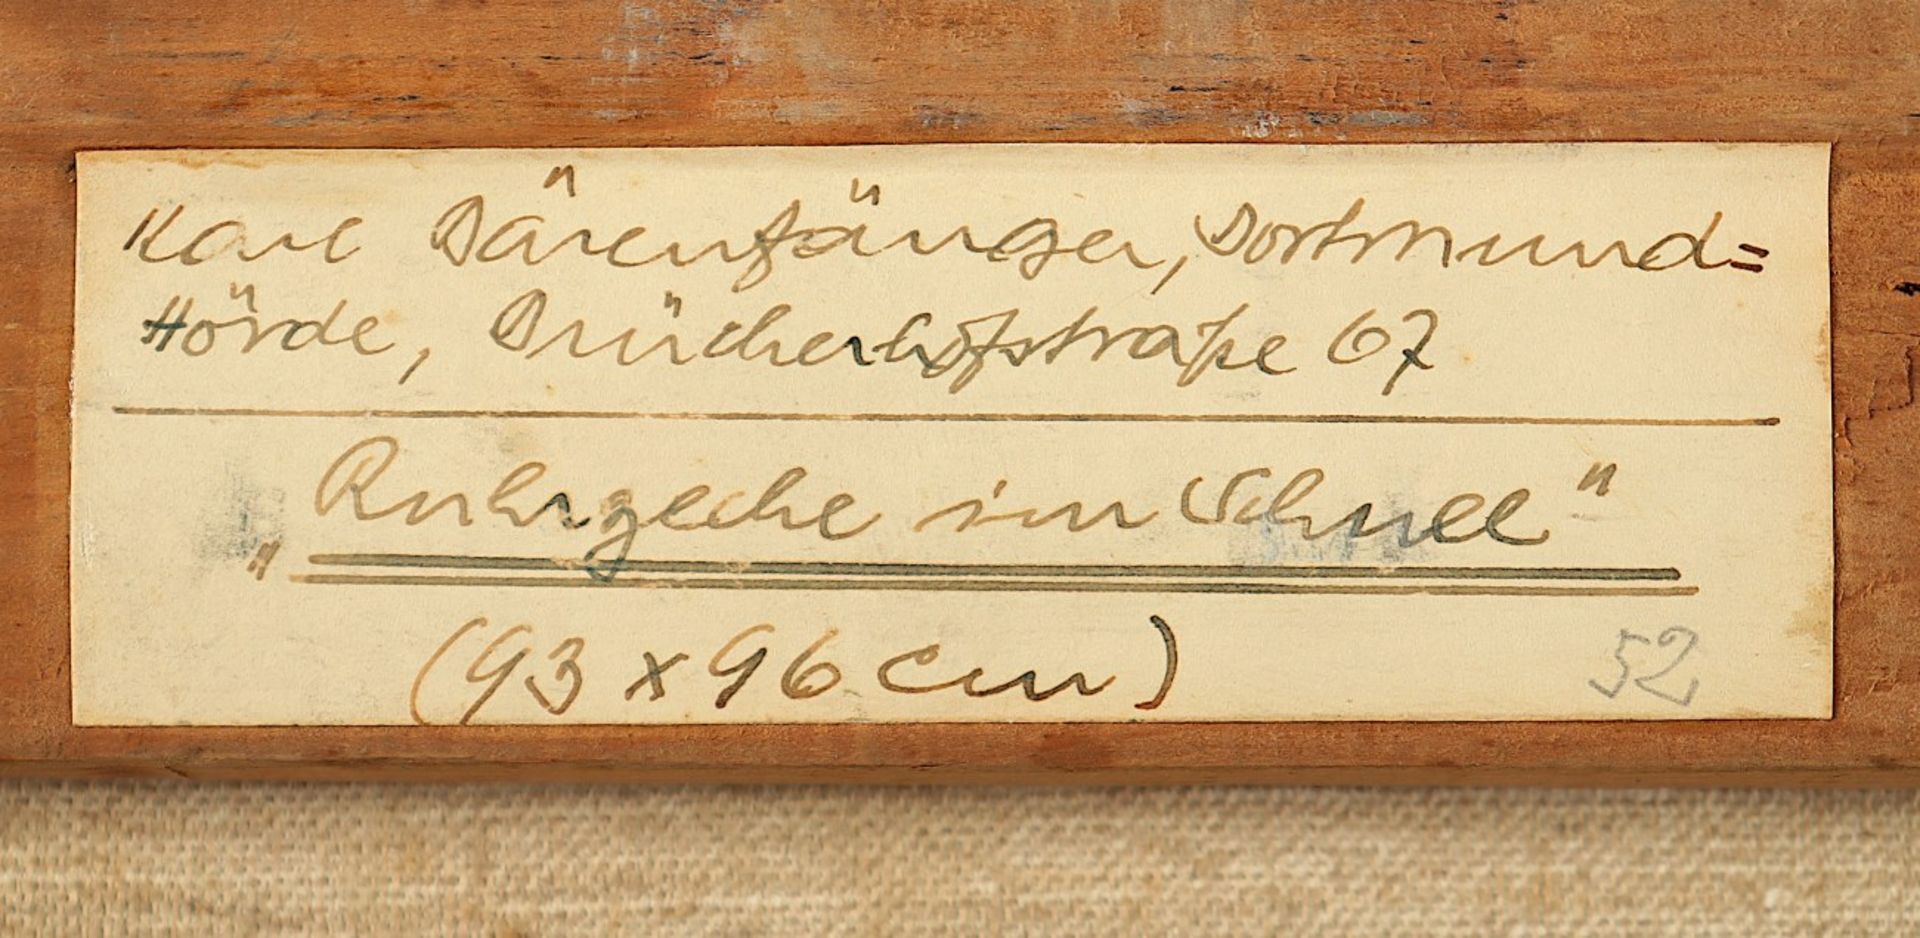 Karl Bärenfänger, Dortmund=
Hörde, Brücherhofstraße 67
„Ruhrzeche im Schnee"
(93 x 96 cm)
52